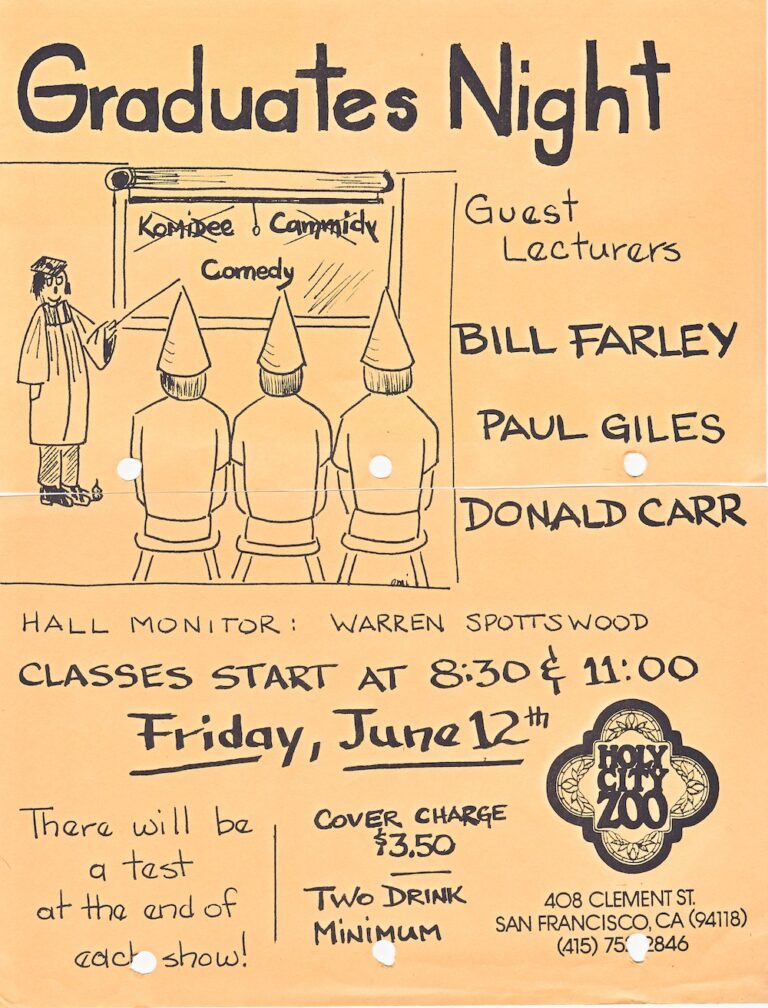 Graduates Night
Komidee Cammidy
Comedy
Guest
Lecturers
BILL FARLEY
PAUL GILES
DONALD CARR
omi
HALL MONITOR: WARREN SPOTTSWOOD
CLASSES START AT 8:30 & 11:00
Friday, June 12th
HOLY
CITY
ZOO
There will be
a test
at the end of
each show!
COVER CHARGE
$3.50
TWO DRINK
MINIMUM
408 CLEMENT ST.
SAN FRANCISCO, CA (94118)
(415) 2846